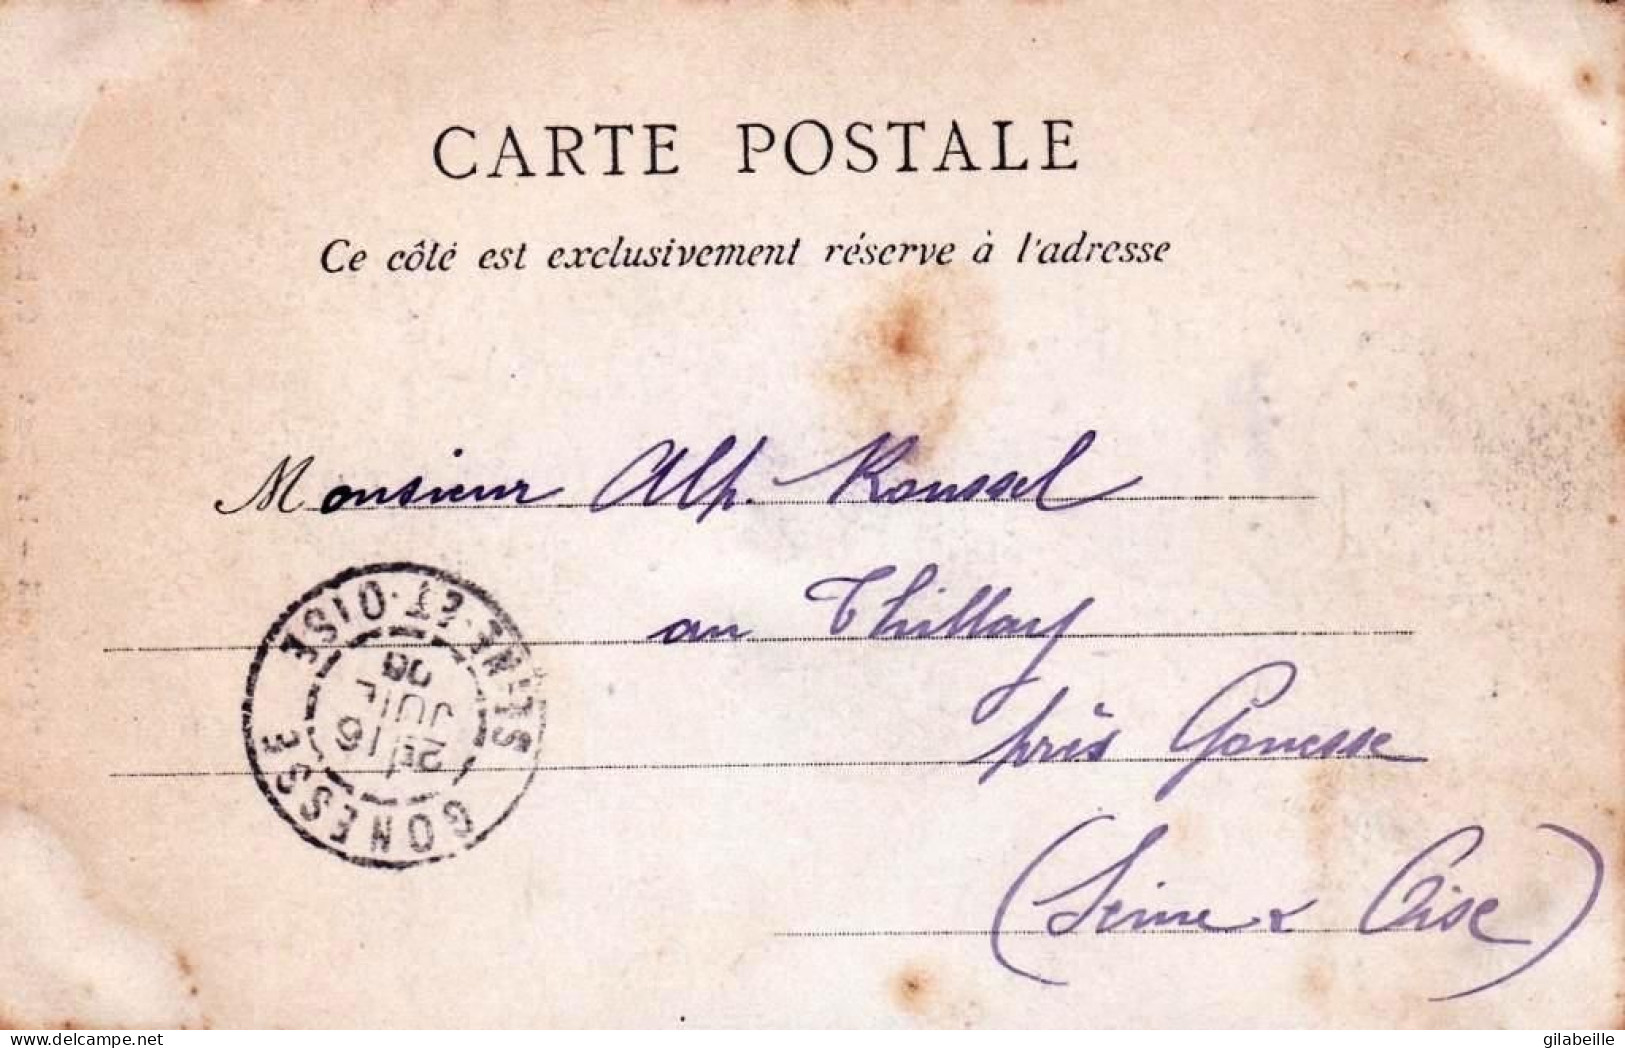 CARTE POSTALE
Ce côté est exclusivement réservé à l'adresse
Monsieur Alph. Roussel
au Thillay
près Gonesse
(Seine & Oise)
GONESSE
SEINE-ET-OISE
25 JUIL
gilabeille